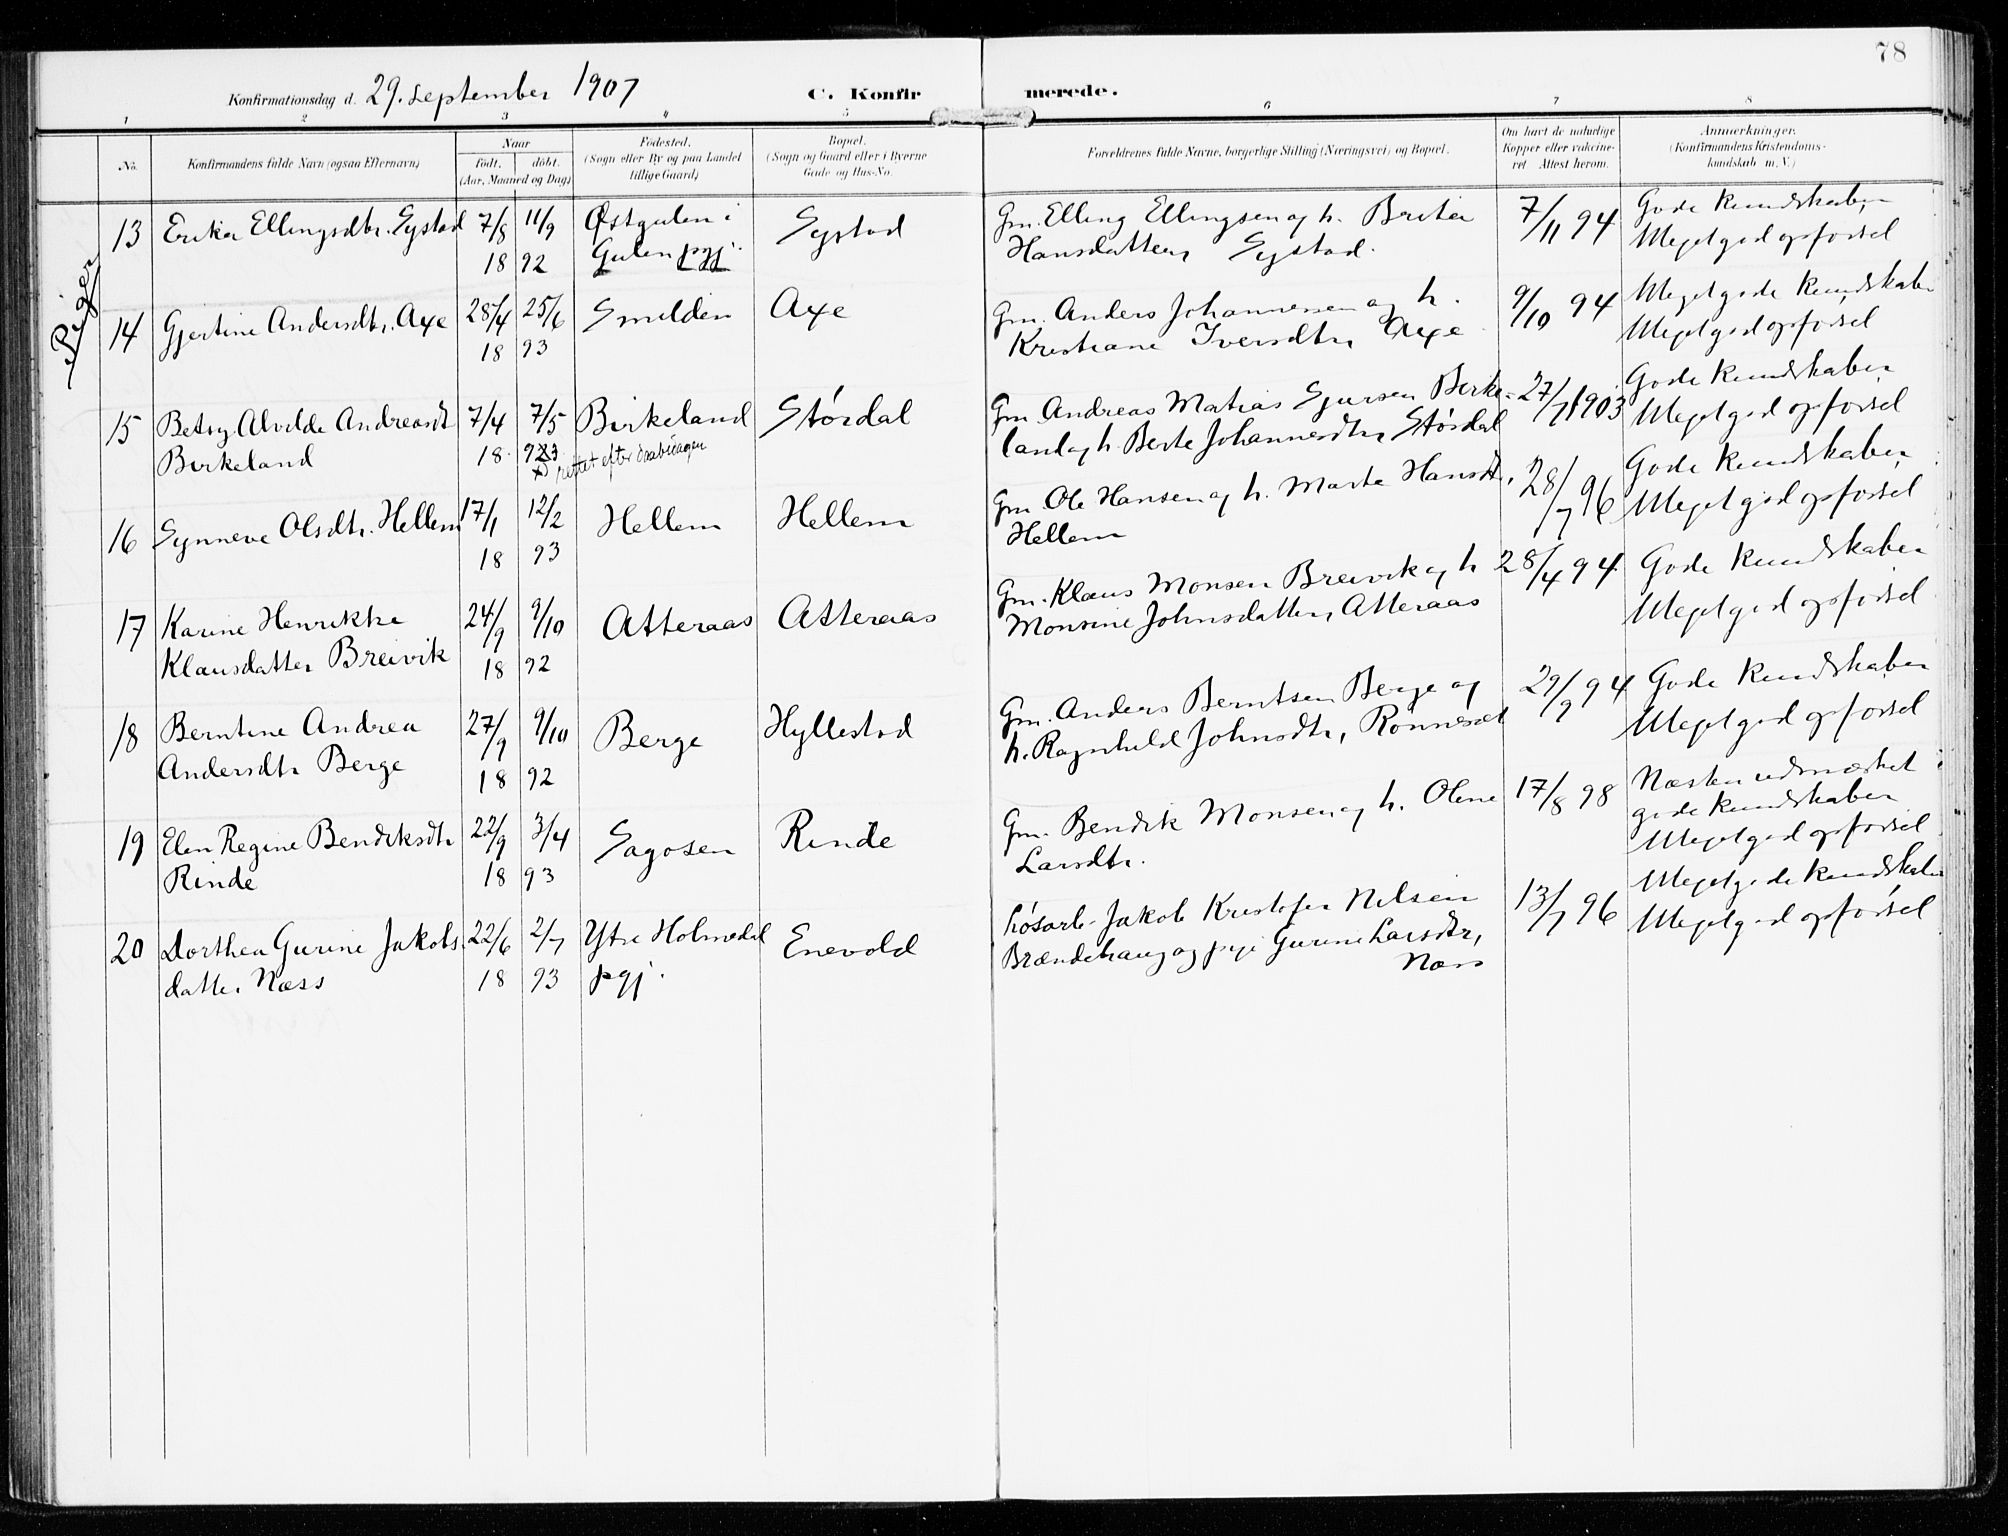 78
Konfirmationsdag d. 29. september 1907 C. Konfirmerede.
1 2 3 4 5 6 7 8
No.
Konfirmandens fulde Navn (ogsaa Efternavn)
Naar
født. døbt.
(Aar, Maaned og Dag)
Fødested.
(Sogn eller By og paa Landet
tillige Gaard)
Bopæl.
(Sogn og Gaard eller i Byerne
Gade og Hus-No.
Forældrenes fulde Navne, borgerlige Stilling (Næringsvei) og Bopæl.
Om havt de naturlige
Kopper eller vaccine-
ret Attest herom.
Anmærkninger.
(Konfirmandens Kristendoms-
kundskab m. V.)
Piger
13 Erika Ellingsdtr. Systad 7/8 11/9 Østgulen i Systad Gm. Elling Ellingsen og h. Brita 7/11 94 Gode kundskaber
18 92 Gulen pgj. Hansdatter, Systad. Meget god opførsel
14 Gjertine Andersdtr. Axe 28/4 25/6 Smilden Axe Gm. Anders Johannesen og h. 9/10 94 Meget gode kundskaber
18 93 Kristiane Iversdtr, Axe Meget god opførsel
15 Betsy Alvilde Andreasdt 7/4 7/5 Birkeland Størdal Gm Andreas Matias Sjursen Birke- 27/7 1903 Gode kundskaber
Birkeland 18 93 rettet efter daabsdagen land og h. Berte Johannesdtr, Størdal Meget god opførsel
16 Synneve Olsdtr. Hellem 17/1 12/2 Hellem Hellem Gm. Ole Hansen og h. Marta Hansdt, 28/7 96 Gode kundskaber
18 93 Hellem Meget god opførsel
17 Karine Henrikke 24/9 9/10 Atteraas Atteraas Gm. Klaus Monsen Breivik og h 28/4 94 Gode kundskaber
Klausdatter Breivik 18 92 Monsine Johnsdatter, Atteraas Meget god opførsel
18 Berntine Andrea 27/9 9/10 Berge Hyllestad Gm. Anders Berntsen Berge og 29/9 94 Gode kundskaber
Andersdtr Berge 18 92 h. Ragnhild Johnsdtr, Rønneset Meget god opførsel
19 Elen Regine Bendiksdtr 22/9 3/4 Sagosen Rinde Gm. Bendik Monsen og h. Oline 17/8 98 Næsten udmærket
Rinde 18 93 Larsdtr. gode kundskaber
Meget god opførsel
20 Dorthea Gurine Jakobs. 22/6 2/7 Ytre Holmedal Enevold Løsarb. Jakob Kristofer Nilsen 13/7 96 Meget gode kundskaber
datter Næss 18 93 pgj. Brændehaug og pige Gurine Larsdtr, Meget god opførsel
Næss